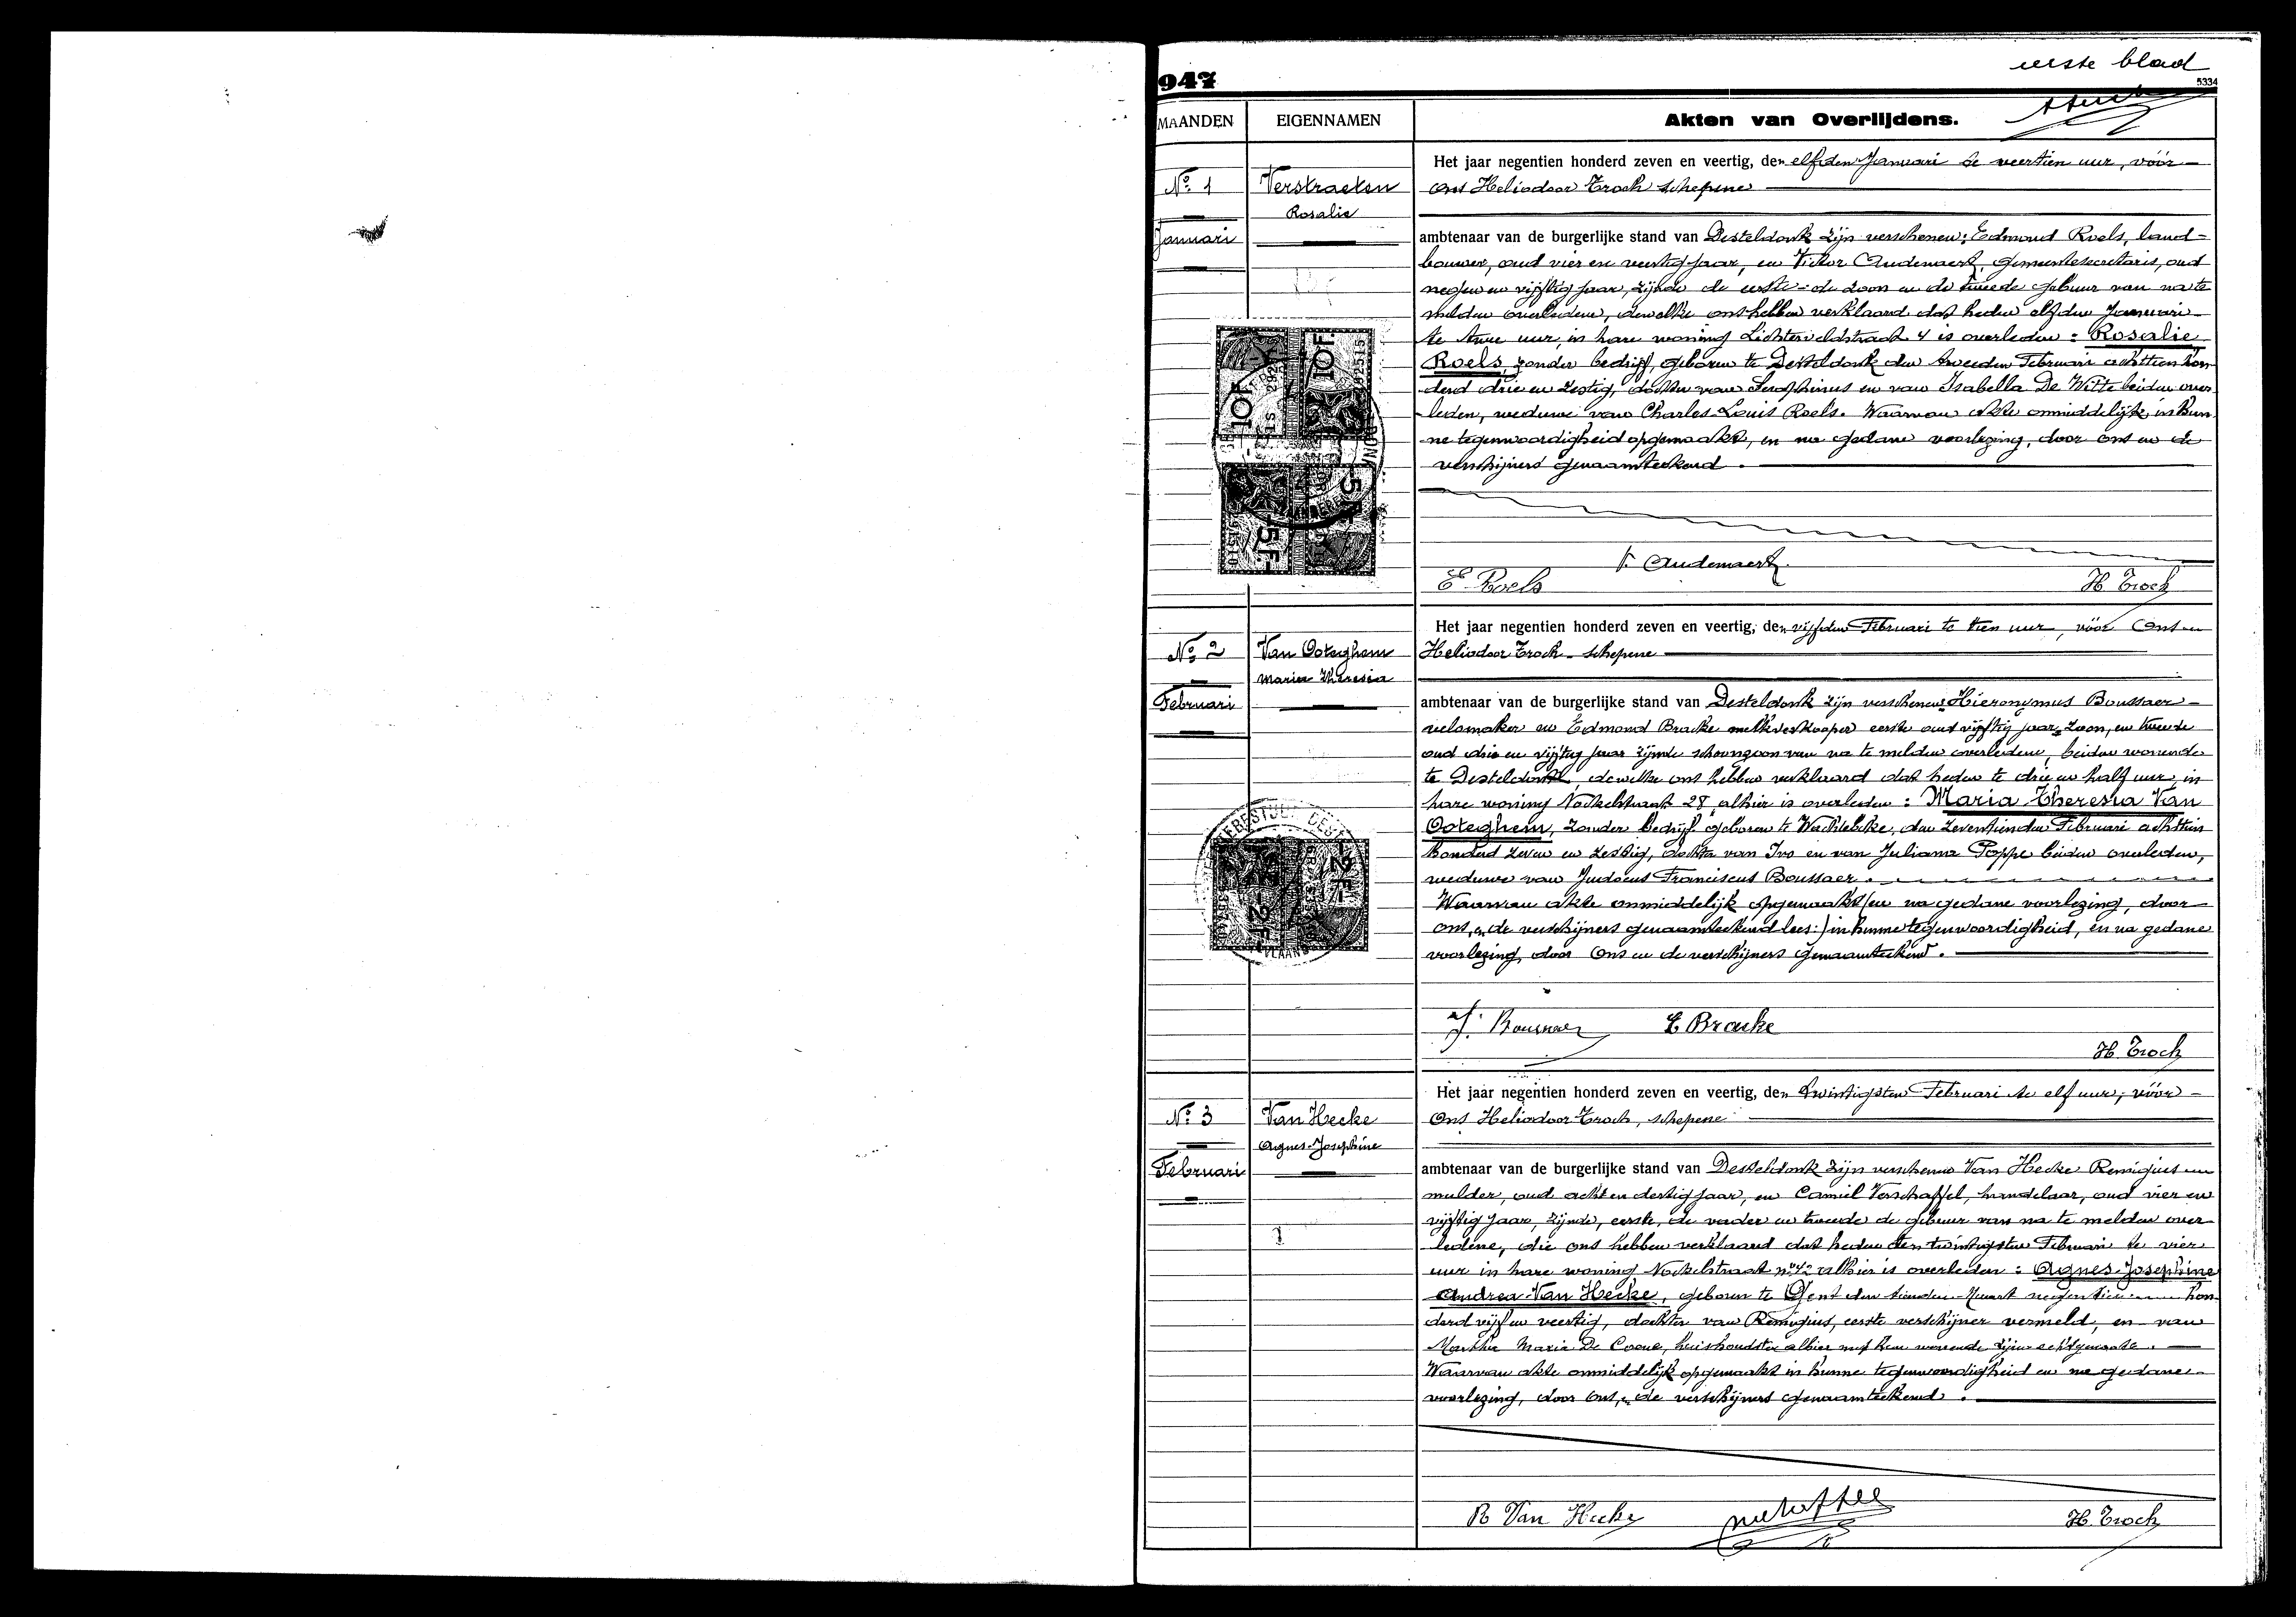 eerste blad
947
5334
MAANDEN EIGENNAMEN Akten van Overlijdens.
Het jaar negentien honderd zeven en veertig, den elfden Januari te veertien uur, vóór
No. 1 Verstraeten ons Heliodoor Troch schepene
Rosalie
Januari ambtenaar van de burgerlijke stand van Desteldonk zijn verschenen: Edmond Roels, land-
bouwer, oud vier en veertig jaar, en Victor Audenaert, gemeentesecretaris, oud
negen en vijftig jaar, zijnde de eerste de zoon en de tweede gebuur van na te
melden overledene, dewelke ons hebben verklaard dat heden elfden Januari
te twee uur, in hare woning Lichtelveldstraat 4 is overleden: Rosalie
Roels, zonder bedrijf, geboren te Desteldonk den tweeden Februari achttien hon-
derd drie en zestig, dochter van Seraphinus en van Isabella De Witte beiden over-
leden, weduwe van Charles Louis Roels. Waarvan akte onmiddelijk in hun-
ne tegenwoordigheid opgemaakt, en na gedane voorlezing, door ons en de
verschijners genaamteekend.
10F. 10F.
5F. 5F.
V. Audenaert
E. Roels H. Troch
Het jaar negentien honderd zeven en veertig, den vijfden Februari te tien uur, vóór Ons
No. 2 Van Ooteghem Heliodoor Troch schepene
Maria Theresia
Februari ambtenaar van de burgerlijke stand van Desteldonk zijn verschenen Hieronymus Boussaer
velomaker en Edmond Bracke melkverkooper eerste oud vijftig jaar zoon, en tweede
oud drie en vijftig jaar zijnde schoonzoon van na te melden overledene, beiden wonende
te Desteldonk, dewelke ons hebben verklaard dat heden te drie en half uur, in
hare woning Nockelstraat 28 alhier is overleden: Maria Theresia Van
Ooteghem, zonder bedrijf geboren te Wachtebeke, den zeventienden Februari achttien
honderd zeven en zestig, dochter van Ivo en van Juliana Poppe beiden overleden,
weduwe van Judocus Franciscus Boussaer.
Waarvan akte onmiddelijk opgemaakt (en na gedane voorlezing, door
ons, en de verschijners genaamteekend lees:) in hunne tegenwoordigheid, en na gedane
voorlezing, door Ons en de verschijners genaamteekend.
2F. 2F.
Boussaer E Bracke
H. Troch
Het jaar negentien honderd zeven en veertig, den twintigsten Februari te elf uur, vóór
No. 3 Van Hecke Ons Heliodoor Troch, schepene
Agnes-Josephine
Februari ambtenaar van de burgerlijke stand van Desteldonk zijn verschenen Van Hecke Remigius
mulder, oud acht en dertig jaar, en Camiel Verschaffel, handelaar, oud vier en
vijftig jaar, zijnde, eerste, de vader en tweede de gebuur van na te melden over-
ledene, die ons hebben verklaard dat heden den twintigsten Februari te vier
uur in hare woning Nockelstraat no 42 alhier is overleden: Agnes-Josephine
Andrea Van Hecke, geboren te Gent den tienden Maart negentien hon-
derd vijf en veertig, dochter van Remigius, eerste verschijner vermeld, en van
Martha Maria De Coene, huishoudster alhier met hem wonende zijne echtgenoote.
Waarvan akte onmiddelijk opgemaakt in hunne tegenwoordigheid en na gedane
voorlezing, door ons, en de verschijners genaamteekend.
R Van Hecke H. Troch